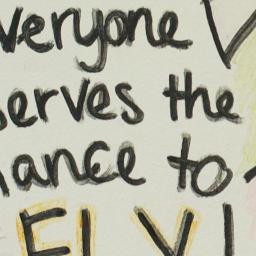 veryone
erves the
ance to
FLY!